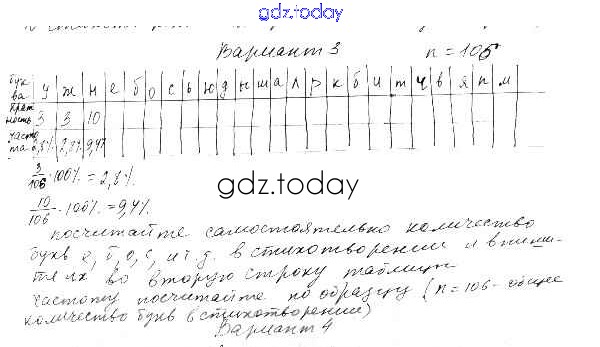 gdz.today
Вариант 3 n = 106
бук ва у ж н е б о с ь ю д ы ш а л р к б и т ч в я п м
крат ность 3 3 10
часто та 2,8% 2,8% 9,4%
3/106 · 100% = 2,8%
gdz.today
10/106 · 100% = 9,4%
посчитайте самостоятельно количество
букв е, б, о, с, и т.д. в стихотворении и впиши-
те их во вторую строку таблицы
частоту посчитайте по образцу (n = 106 - общее
количество букв в стихотворении)
Вариант 4